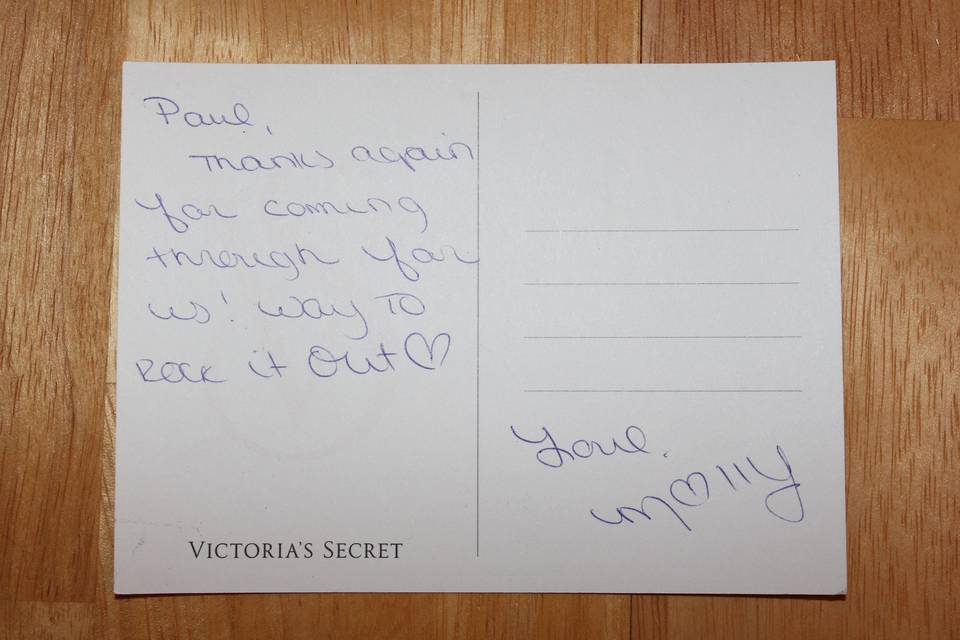 Paul,
Thanks again
for coming
through for
us! Way To
Rock it Out♡
VICTORIA'S SECRET
Love,
m♡lly